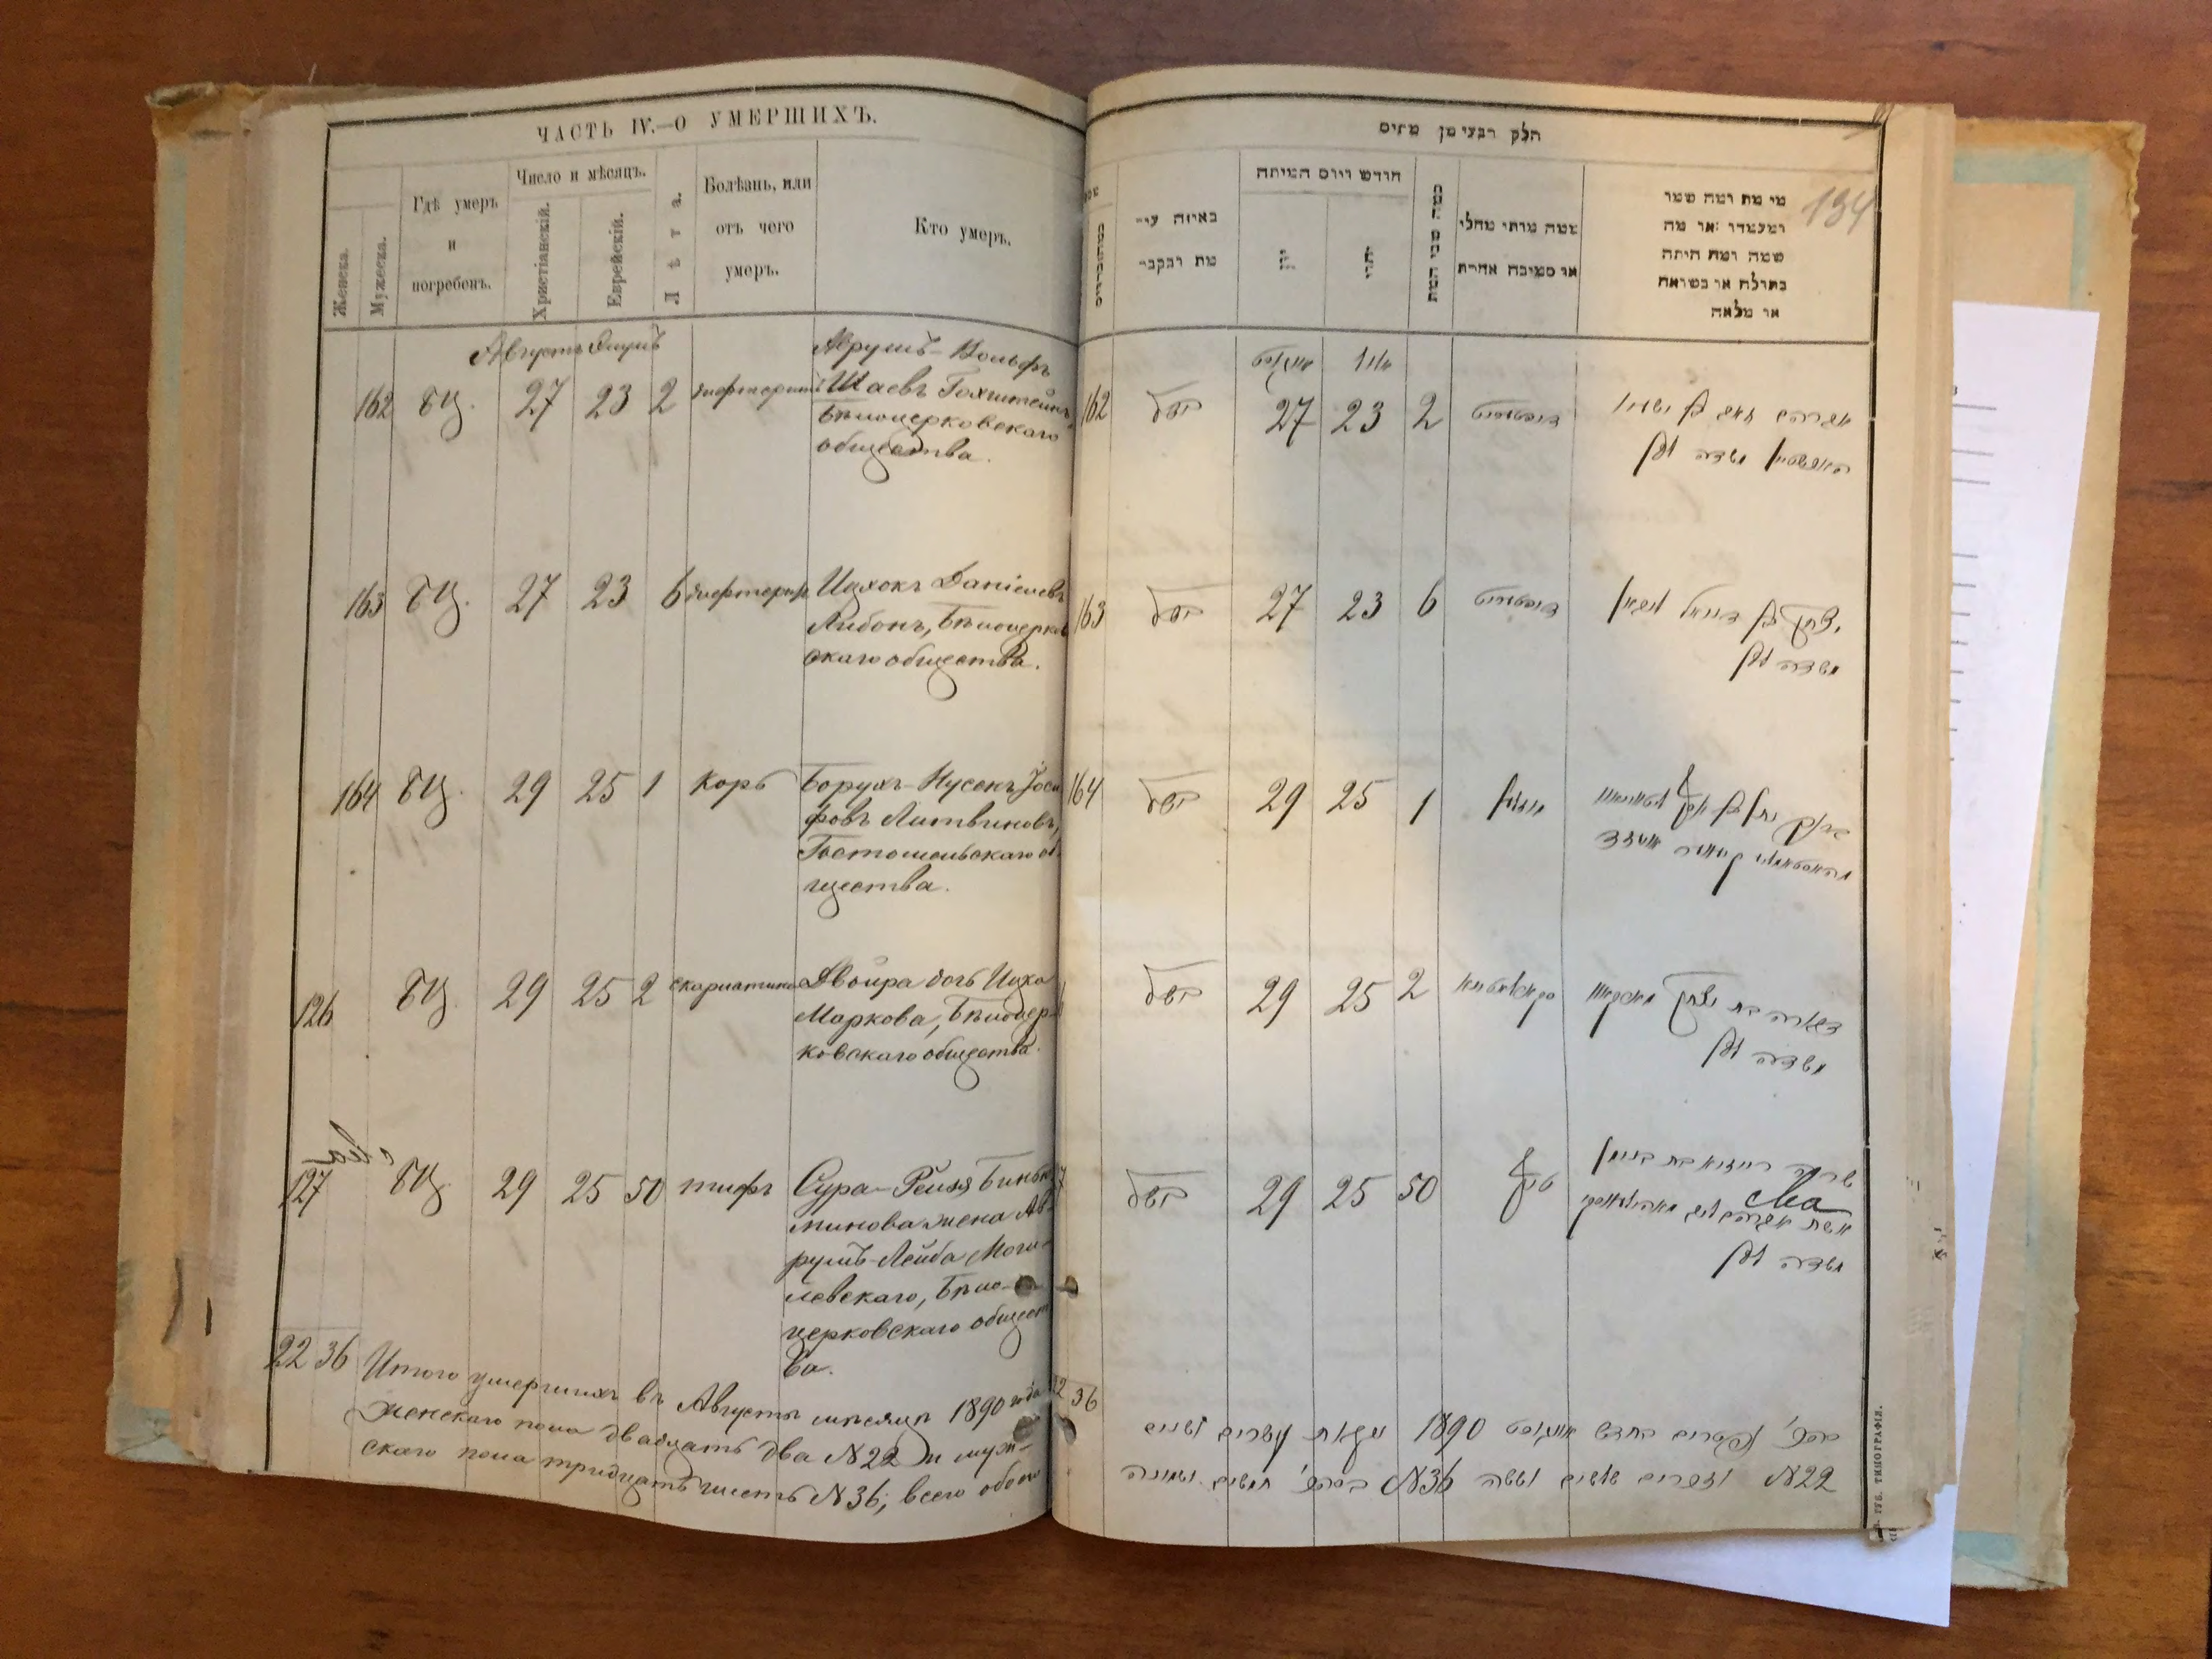 ЧАСТЬ IV.—О УМЕРШИХЪ.
Женска.
Мужеска.
Гдѣ умеръ
и
погребенъ.
Число и мѣсяцъ.
Христіанскій.
Еврейскій.
Лѣта.
Болѣзнь, или
отъ чего
умеръ.
Кто умеръ.
Августъ Элулъ
162 БЦ. 27 23 2 дифтеритъ
Аврумъ-Вольфъ
Шаевъ Гохштейнъ,
Бѣлоцерковскаго
общества.
163 БЦ. 27 23 6 дифтеритъ
Ицхокъ Даніелевъ
Либонъ, Бѣлоцерков
скаго общества.
164 БЦ. 29 25 1 корь
Борухъ-Нусенъ Іоси
фовъ Литвиновъ,
Гостомельскаго об
щества.
126 БЦ. 29 25 2 скарлатина
Двойра дочь Ицко
Маркова, Бѣлоцер-
ковскаго общества.
127 БЦ. 29 25 50 тифъ
Сура-Рейзя Биньо
минова жена Ав-
румъ-Лейба Моги-
левскаго, Бѣло-
церковскаго общест
ва.
22 36 Итого умершихъ въ Августѣ мѣсяцѣ 1890 года
женскаго пола двадцать два №22 и муж-
скаго пола тридцать шесть №36; всего обоего
חלק רבעי מן מתים
134
באיזה עיר
מת ונקבר
חודש ויום המיתה
יון
יהודי
כמה שני המת
ממה מותו מחלי
או מסיבה אחרת
מי מת ומה שמו
ומעמדו או מה
שמה ומה היתה
בתולה או נשואה
או מלאה
אווגוסט אלול
162 27 23 2 דיפטעריט
אברהם וואלף בן ישעיה
האכשטיין
163 27 23 6 דיפטעריט
יצחק בן דניאל ליבאן
164 29 25 1 מאזלען
ברוך נתן בן יוסף ליטווינאוו
29 25 2 סקארלאטינא
דבורה בת יצחק מארקאוו
29 25 50 טיף
שרה רייזיא בת בנימין
אשת אברהם ליב מאהילעווסקי
36
בסה״כ נפטרים בחדש אווגוסט 1890 נקבות עשרים ושנים
№22 וזכרים שלשים וששה №36 בסה״כ חמשים ושמונה